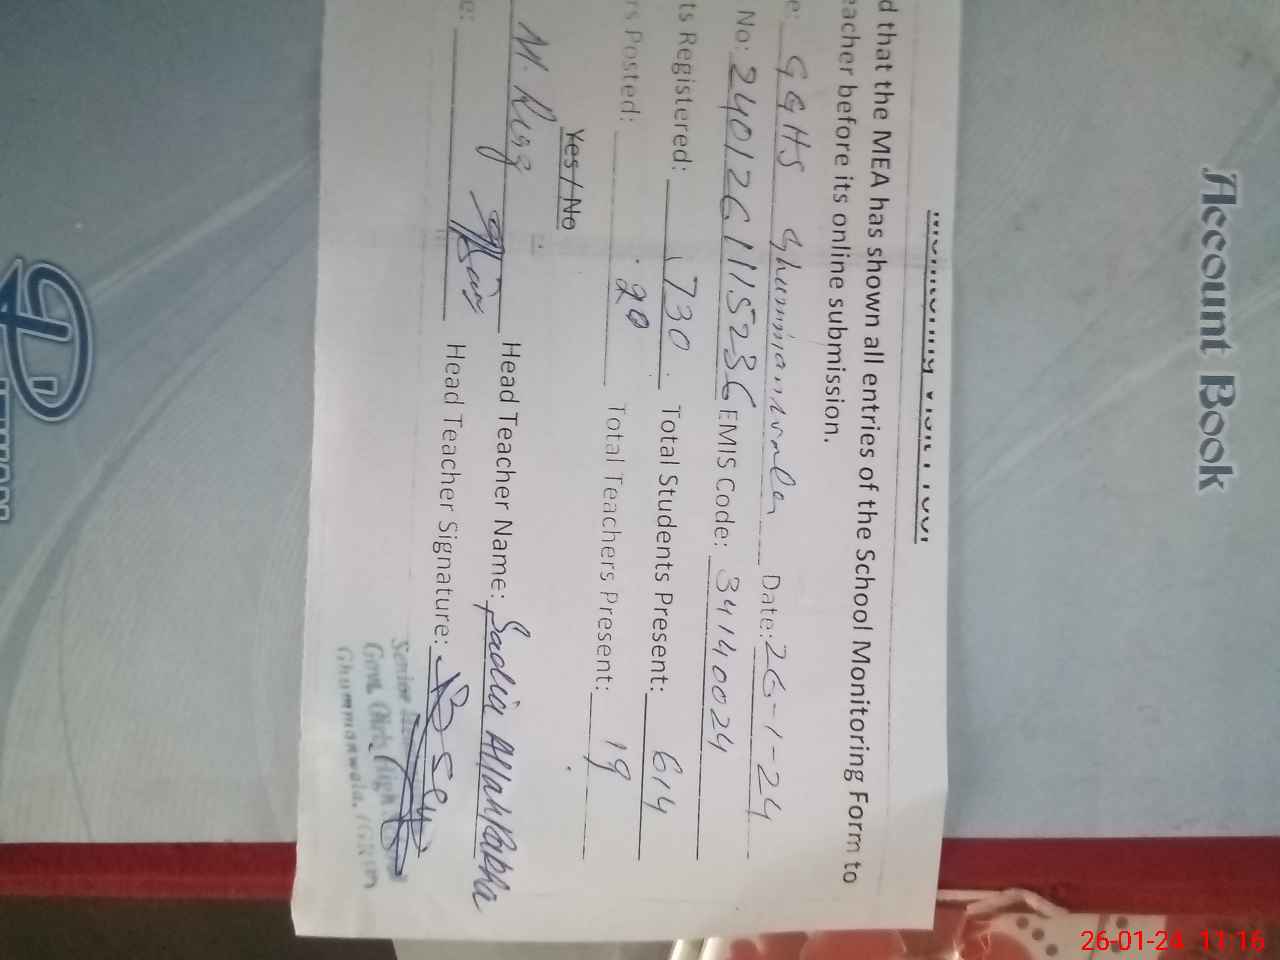 Account Book
Monitoring Visit Proof
d that the MEA has shown all entries of the School Monitoring Form to
eacher before its online submission.
e: GGHS Ghummanwala Date: 26-1-24
No: 2401261115236 EMIS Code: 34140024
ts Registered: 730 Total Students Present: 614
rs Posted: 20 Total Teachers Present: 19
Yes / No
M. Riaz Head Teacher Name: Sadia Allah Rakha
e: Head Teacher Signature:
Senior
Govt. Girls High
Ghummanwala,
26-01-24 11:16